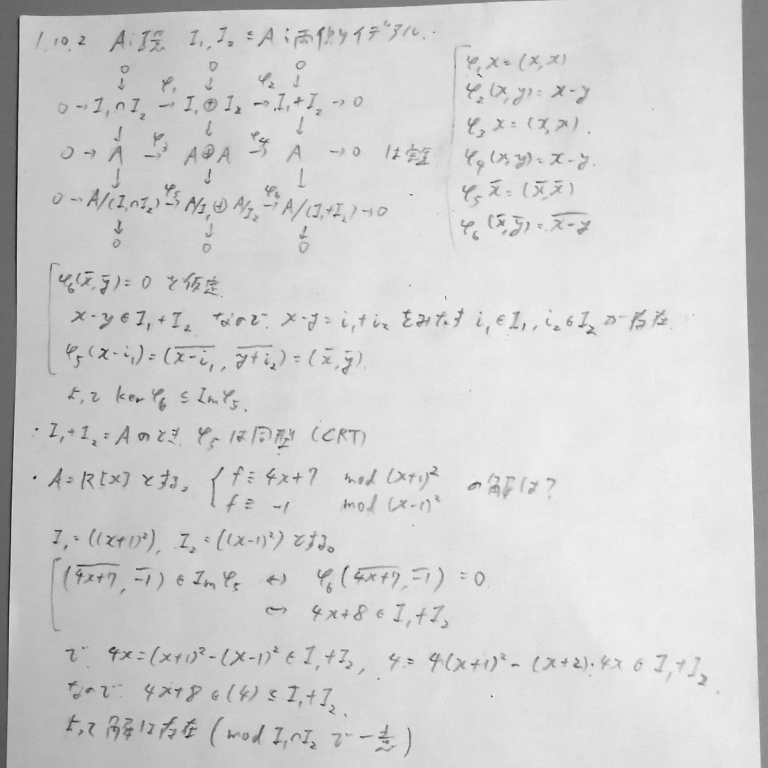 1.10.2 A:環 I₁, I₂ ⊆ A:両側イデアル.
0 0 0
↓ ↓ ↓
0 → I₁∩I₂ →φ₁ I₁⊕I₂ →φ₂ I₁+I₂ → 0
↓ ↓ ↓
0 → A →φ₃ A⊕A →φ₄ A → 0 は完全
↓ ↓ ↓
0 → A/(I₁∩I₂) →φ₅ A/I₁ ⊕ A/I₂ →φ₆ A/(I₁+I₂) → 0
↓ ↓ ↓
0 0 0
φ₁x = (x, x)
φ₂(x, y) = x-y
φ₃x = (x, x).
φ₄(x, y) = x-y.
φ₅x̄ = (x̄, x̄)
φ₆(x̄, ȳ) = \overline{x-y}
φ₆(x̄, ȳ) = 0 と仮定.
x-y ∈ I₁+I₂ なので. x-y = i₁+i₂ をみたす i₁∈I₁, i₂∈I₂ が存在.
φ₅(x-i₁) = (\overline{x-i₁}, \overline{y+i₂}) = (x̄, ȳ).
よって ker φ₆ ⊆ Im φ₅.
・I₁+I₂=A のとき φ₅は同型 (CRT)
・A=ℝ[x] とする。 { f ≡ 4x+7 mod (x+1)²
f ≡ -1 mod (x-1)² の解は?
I₁=((x+1)²), I₂=((x-1)²) とする。
(\overline{4x+7}, \overline{-1}) ∈ Im φ₅ ⇔ φ₆(\overline{4x+7}, \overline{-1}) = 0
⇔ 4x+8 ∈ I₁+I₂
で 4x=(x+1)²-(x-1)² ∈ I₁+I₂, 4= 4(x+1)² - (x+2)·4x ∈ I₁+I₂
なので 4x+8 ∈ (4) ⊆ I₁+I₂.
よって解は存在 (mod I₁∩I₂ で一意)